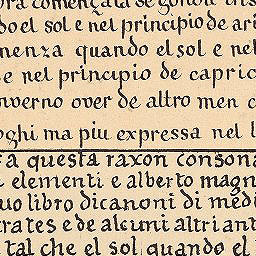 do el sol e nel principio de ari
nenza quando el sol e nel
e nel principio de capric
nverno over de altro men c
oghi ma piu expressa nel l
a questa raxon consona
elementi e alberto magn
uo libro di canoni di medi
trates e de alcuni altri ant
tal che el sol quando el